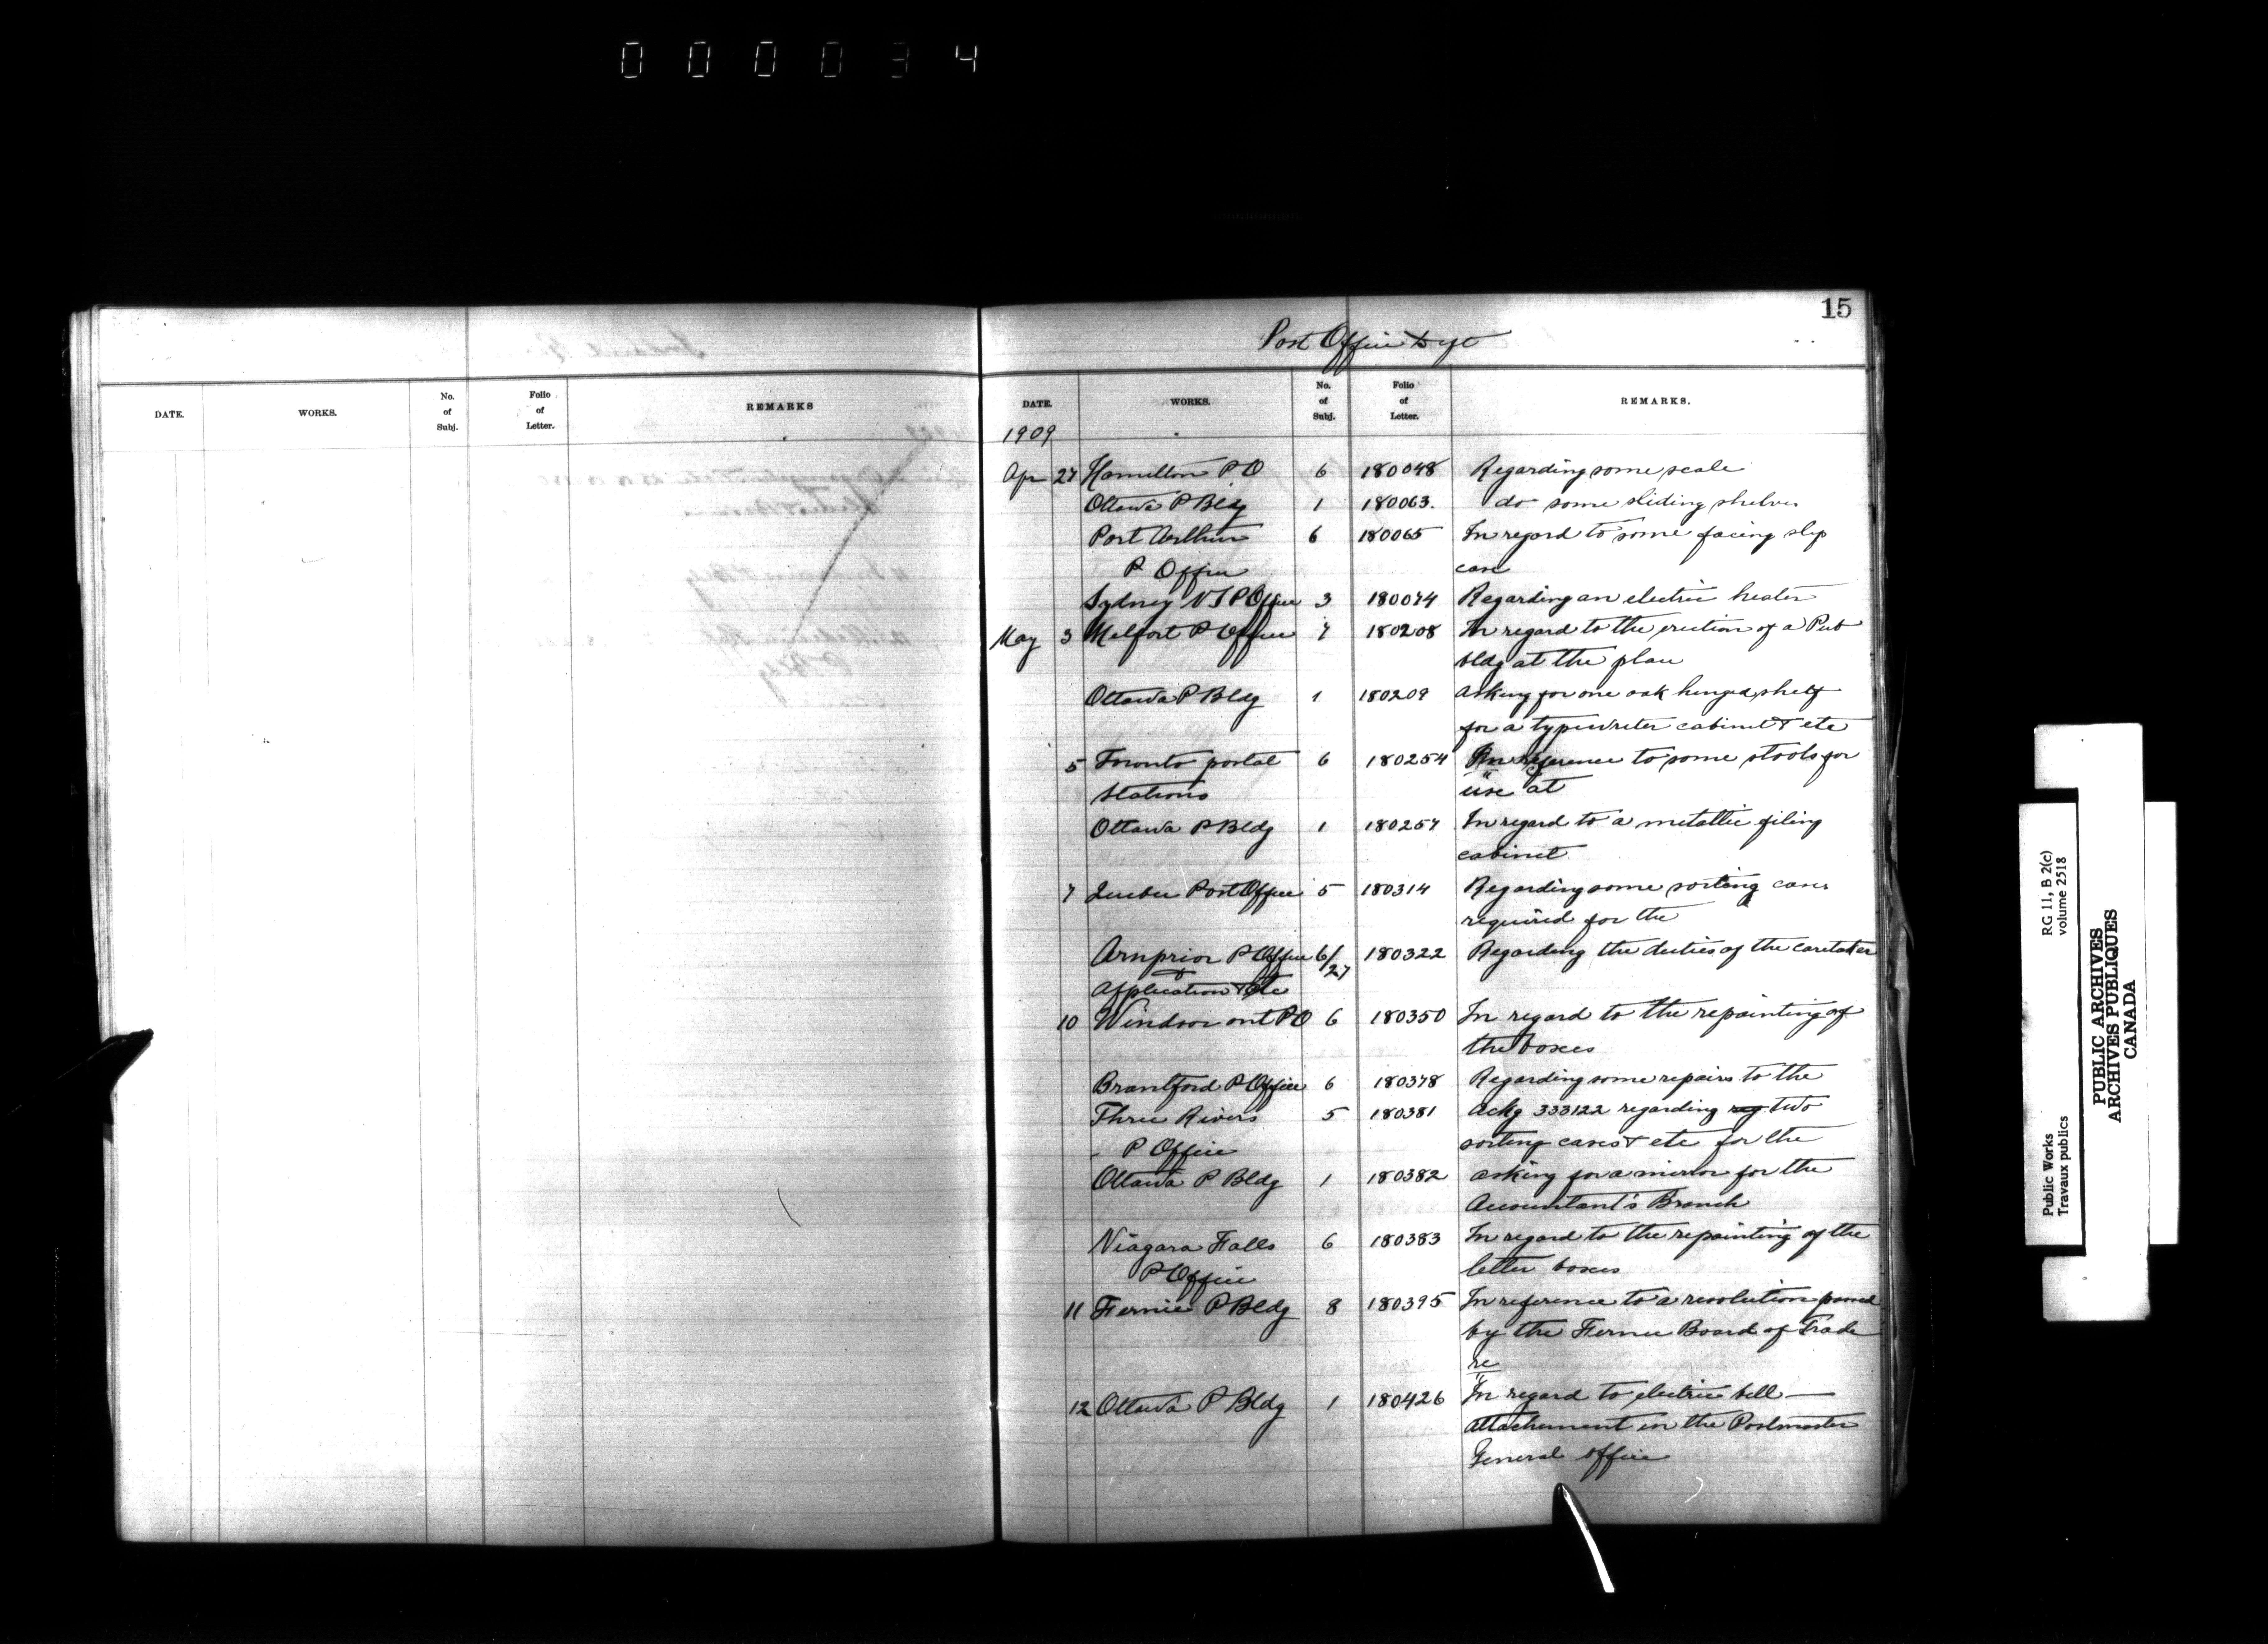 000034
15
Post Office Dept
DATE. WORKS. No. of Subj. Folio of Letter. REMARKS
DATE. WORKS. No. of Subj. Folio of Letter. REMARKS.
1909
Apr 27 Hamilton P O 6 180048 Regarding some scale
Ottawa P Bldg 1 180063. do some sliding shelves
Port Arthur 6 180065 In regard to some facing slip
P Office case
Sydney N S P Office 3 180074 Regarding an electric heater
May 3 Melfort P Office 7 180208 In regard to the erection of a Pub
bldg at the place
Ottawa P Bldg 1 180209 Asking for one oak hinged shelf
for a typewriter cabinet & etc
5 Toronto postal 6 180254 In reference to some stools for
stations use at
Ottawa P Bldg 1 180257 In regard to a metallic filing
cabinet
7 Quebec Post Office 5 180314 Regarding some sorting cases
required for the
Arnprior P Office 6/27 180322 Regarding the duties of the caretaker
Application & etc
10 Windsor ont P O 6 180350 In regard to the repainting of
the boxes
Brantford P Office 6 180378 Regarding some repairs to the
Three Rivers 5 180381 Ackg 333122 regarding reg two
P Office sorting cases & etc for the
Ottawa P Bldg 1 180382 asking for a mirror for the
Accountant's Branch
Niagara Falls 6 180383 In regard to the repainting of the
P Office letter boxes
11 Fernie P Bldg 8 180395 In reference to a resolution passed
by the Fernie Board of Trade
re
12 Ottawa P Bldg 1 180426 In regard to electric bell —
attachement in the Postmaster
General office
Public Works
Travaux publics
RG 11, B 2(c)
volume 2518
PUBLIC ARCHIVES
ARCHIVES PUBLIQUES
CANADA